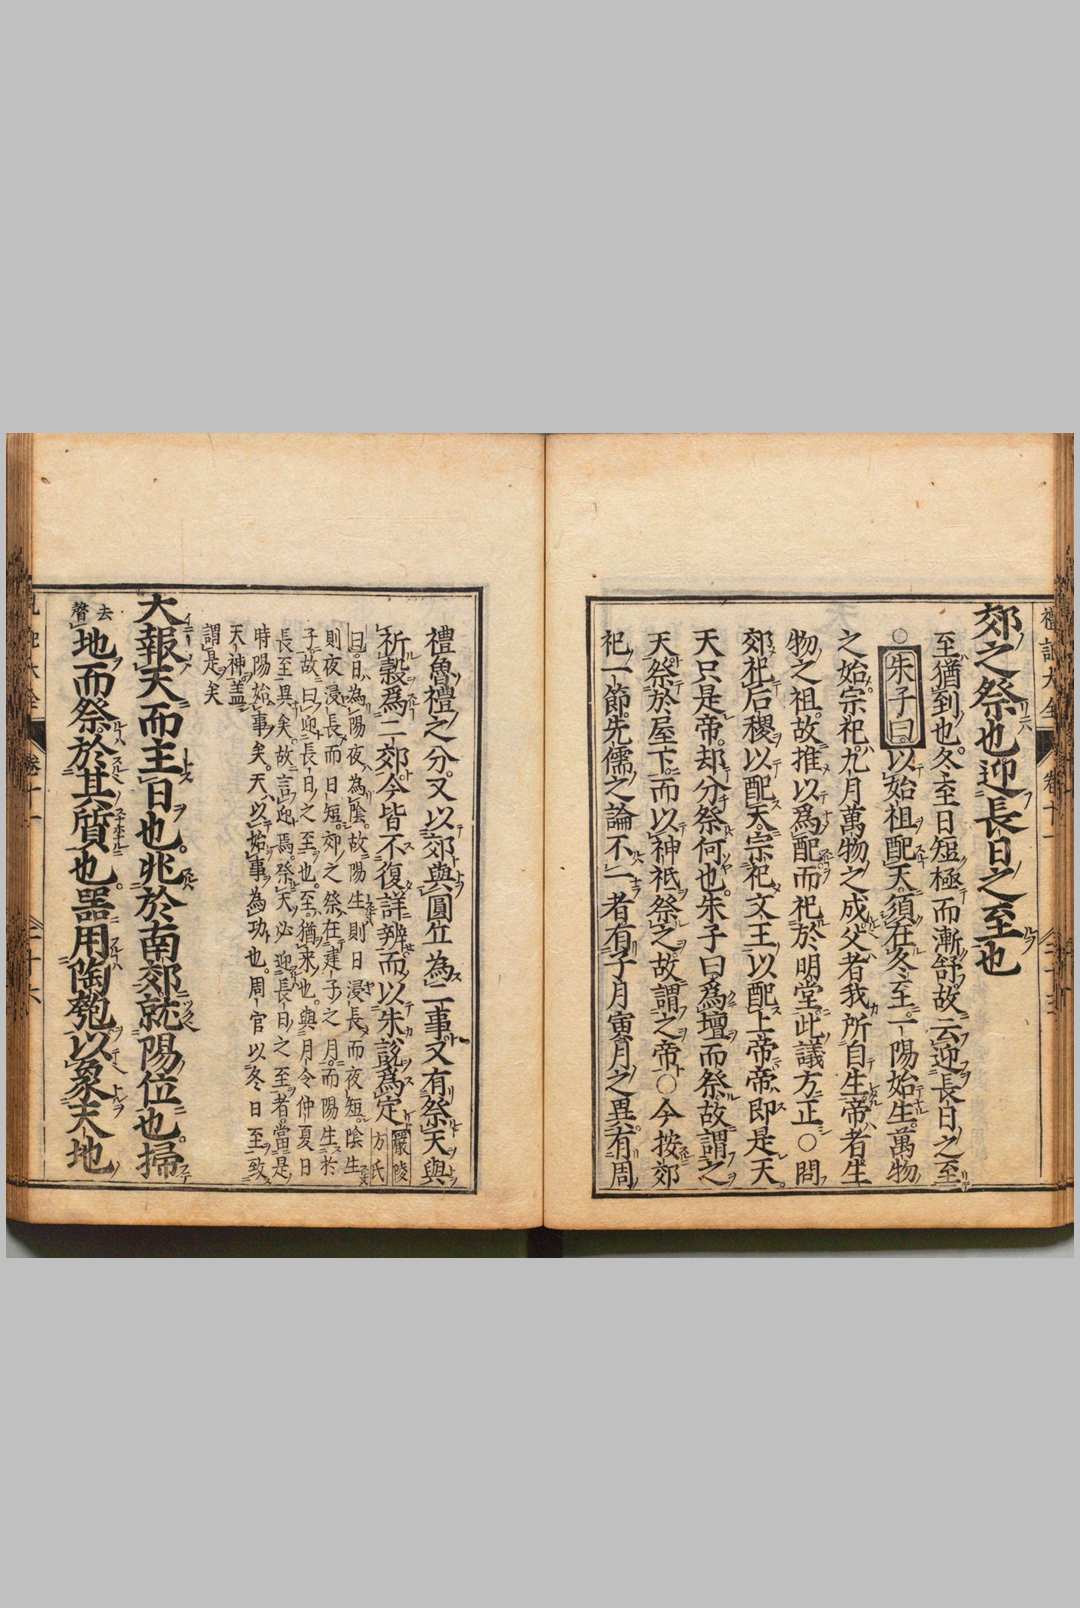 郊之祭也迎長日之至也
至猶到也。冬至日短極而漸舒。故云迎長日之至
○朱子曰。以始祖配天。須在冬至。一陽始生。萬物
之始。宗祀。九月萬物之成。父者我所自生。帝者生
物之祖。故推以爲配而祀於明堂。此議方正。○問
郊祀后稷以配天。宗祀文王以配上帝。帝即是天。
天只是帝。却分祭何也。朱子曰。爲壇而祭。故謂之
天。祭於屋下。而以神祇祭之。故謂之帝。○今按郊
祀一節。先儒之論不一者。有子月寅月之異。有周
禮魯禮之分。又以郊與圓丘為二事。又有祭天與
祈穀爲二郊。今皆不復詳辨。而以朱說爲定 嚴陵方氏
曰。日為陽。夜為陰。故陽生則日浸長而夜短。陰生
則夜浸長而日短。郊之祭在建子之月。而陽生於
子。故曰迎長日之至也。至猶來也。與月令仲夏日
長至異矣。故言迎焉。祭天必迎長日之至者。當是
時陽始事矣。天以始事為功也。周官以冬日至致
天神。盖
謂是矣
大報天而主日也。兆於南郊。就陽位也。掃
去聲 地而祭。於其質也。器用陶匏以象天地
禮記大全 卷十一